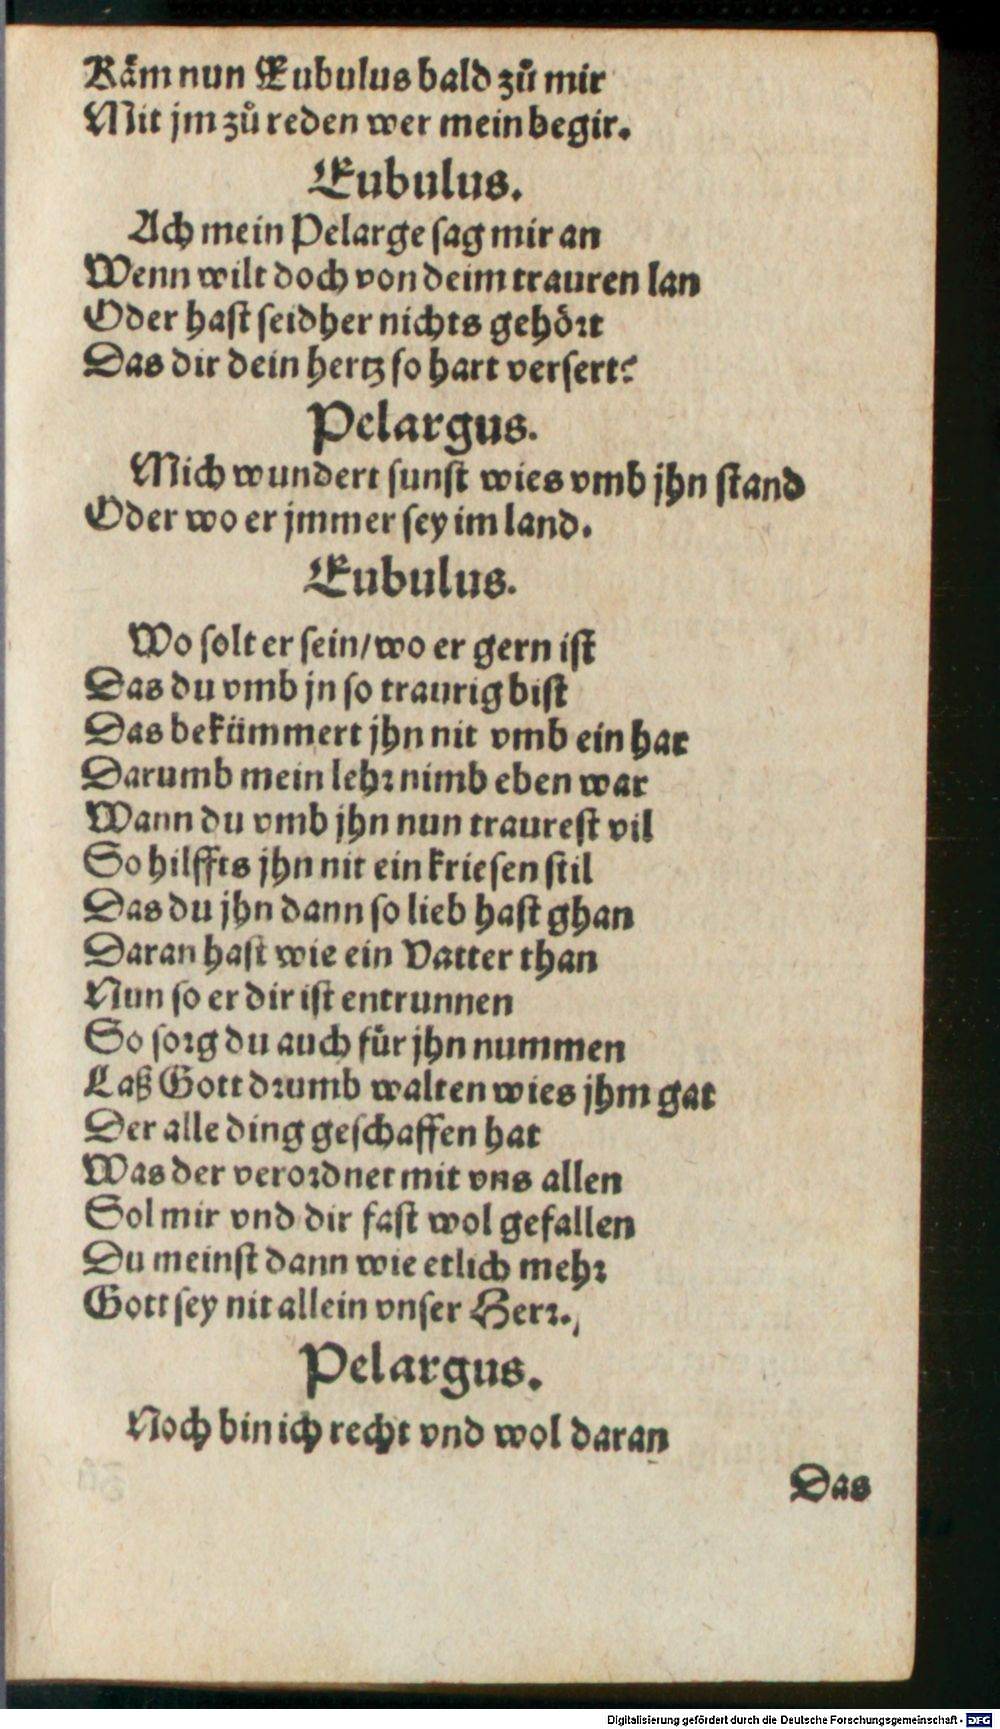 Käm nun Eubulus bald zuͦ mir
Mit jm zuͦ reden wer mein begir.
Eubulus.
Ach mein Pelarge sag mir an
Wenn wilt doch von deim trauren lan
Oder hast seidher nichts gehört
Das dir dein hertz so hart versert?
Pelargus.
Mich wundert sunst wies vmb jhn stand
Oder wo er jmmer sey im land.
Eubulus.
Wo solt er sein/wo er gern ist
Das du vmb jn so traurig bist
Das bekümmert jhn nit vmb ein har
Darumb mein lehr nimb eben war
Wann du vmb jhn nun traurest vil
So hilffts jhn nit ein kriesen stil
Das du jhn dann so lieb hast ghan
Daran hast wie ein Vatter than
Nun so er dir ist entrunnen
So sorg du auch für jhn nummen
Laß Gott drumb walten wies jhm gat
Der alle ding geschaffen hat
Was der verordnet mit vns allen
Sol mir vnd dir fast wol gefallen
Du meinst dann wie etlich mehr
Gott sey nit allein vnser Herr.
Pelargus.
Noch bin ich recht vnd wol daran
Das
Digitalisierung gefördert durch die Deutsche Forschungsgemeinschaft - DFG